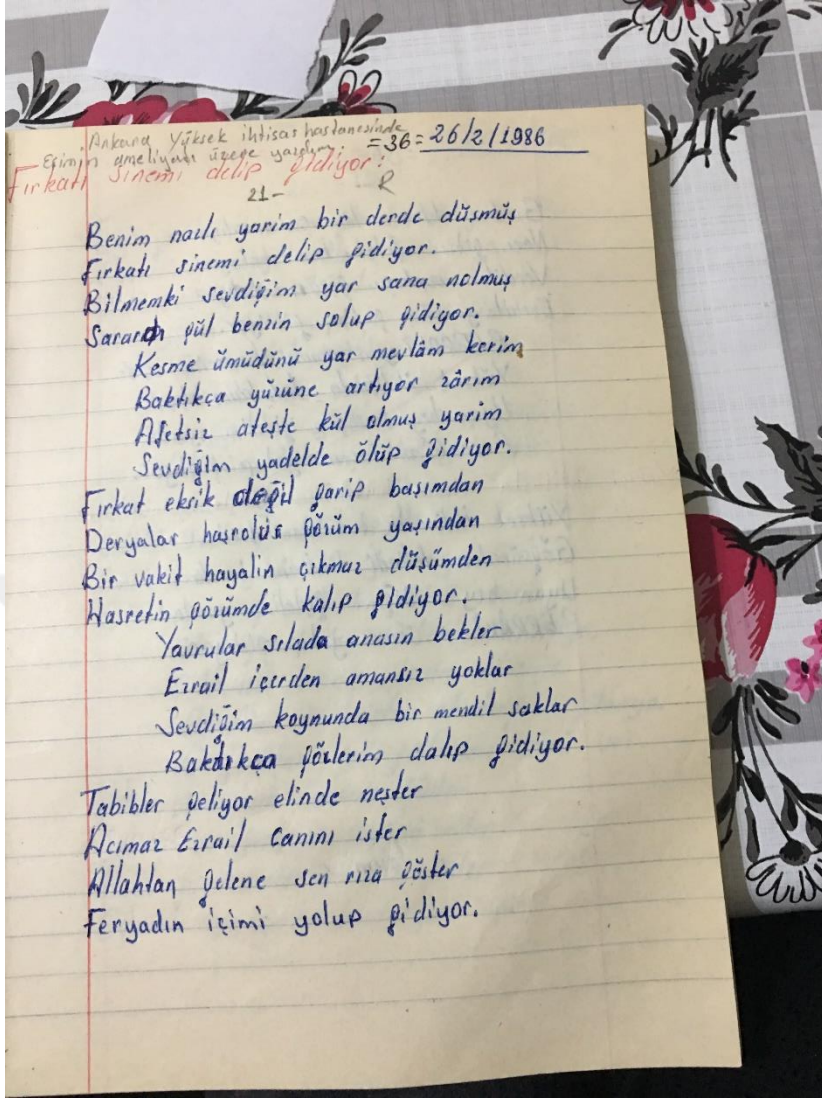 Ankara Yüksek ihtisas hastanesinde
Eşimin ameliyatı üzere yazdım.
=36= 26/2/1986
Fırkatı sinemi delip gidiyor:
21-
R
Benim nazlı yarim bir derde düşmüş
Fırkatı sinemi delip gidiyor.
Bilmemki sevdiğim yar sana nolmuş
Sarardı gül benzin solup gidiyor.
Kesme ümüdünü yar mevlâm kerim
Baktıkça yüzüne artıyor zârım
Afetsiz ateşte kül olmuş yarim
Sevdiğim yadelde ölüp gidiyor.
Fırkat eksik değil garip başımdan
Deryalar hasrolur gözüm yaşından
Bir vakit hayalin çıkmaz düşümden
Hasretin gözümde kalıp gidiyor.
Yavrular sılada anasın bekler
Ezrail içerden amansız yoklar
Sevdiğim koynunda bir mendil saklar
Baktıkça gözlerim dalıp gidiyor.
Tabibler geliyor elinde neşter
Acımaz Ezrail canını ister
Allahtan gelene sen rıza göster
Feryadın içimi yolup gidiyor.